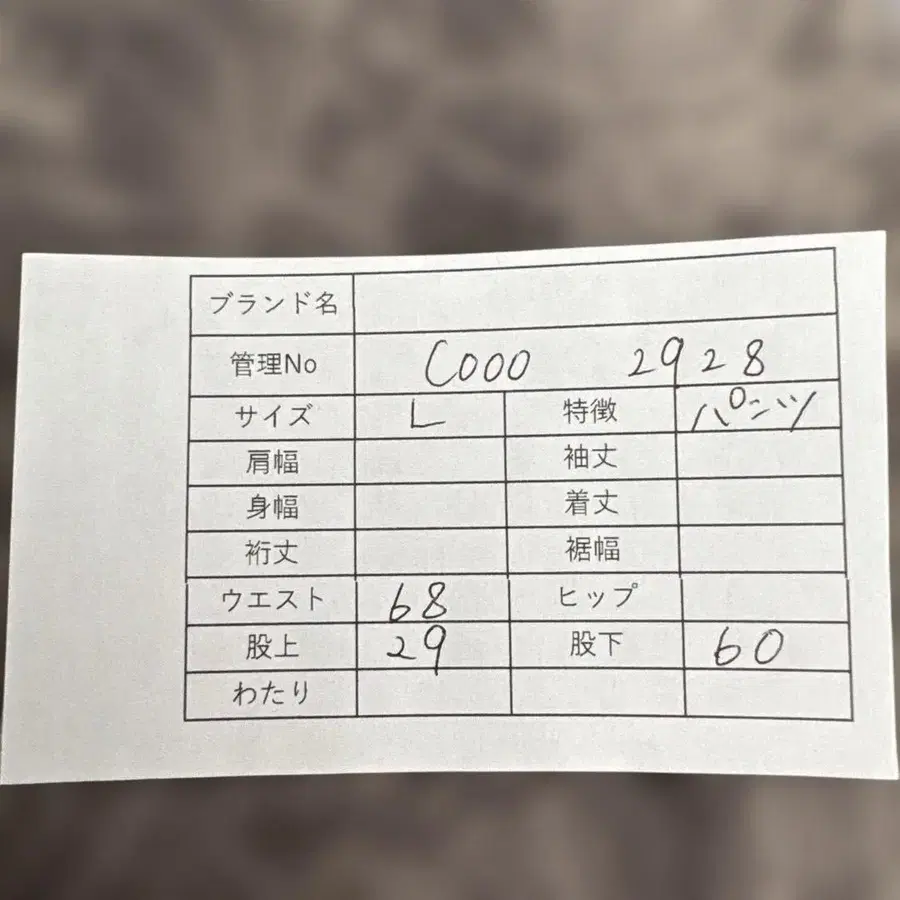 ブランド名
管理No C000 2928
サイズ L 特徴 パンツ
肩幅 袖丈
身幅 着丈
裄丈 裾幅
ウエスト 68 ヒップ
股上 29 股下 60
わたり